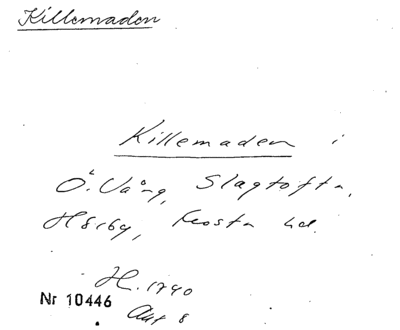 Killemaden
Killemaden i
Ö. Vång, Slagtofta,
Hörby, Frosta hd.
H. 1740
Nr 10446
Akt 8